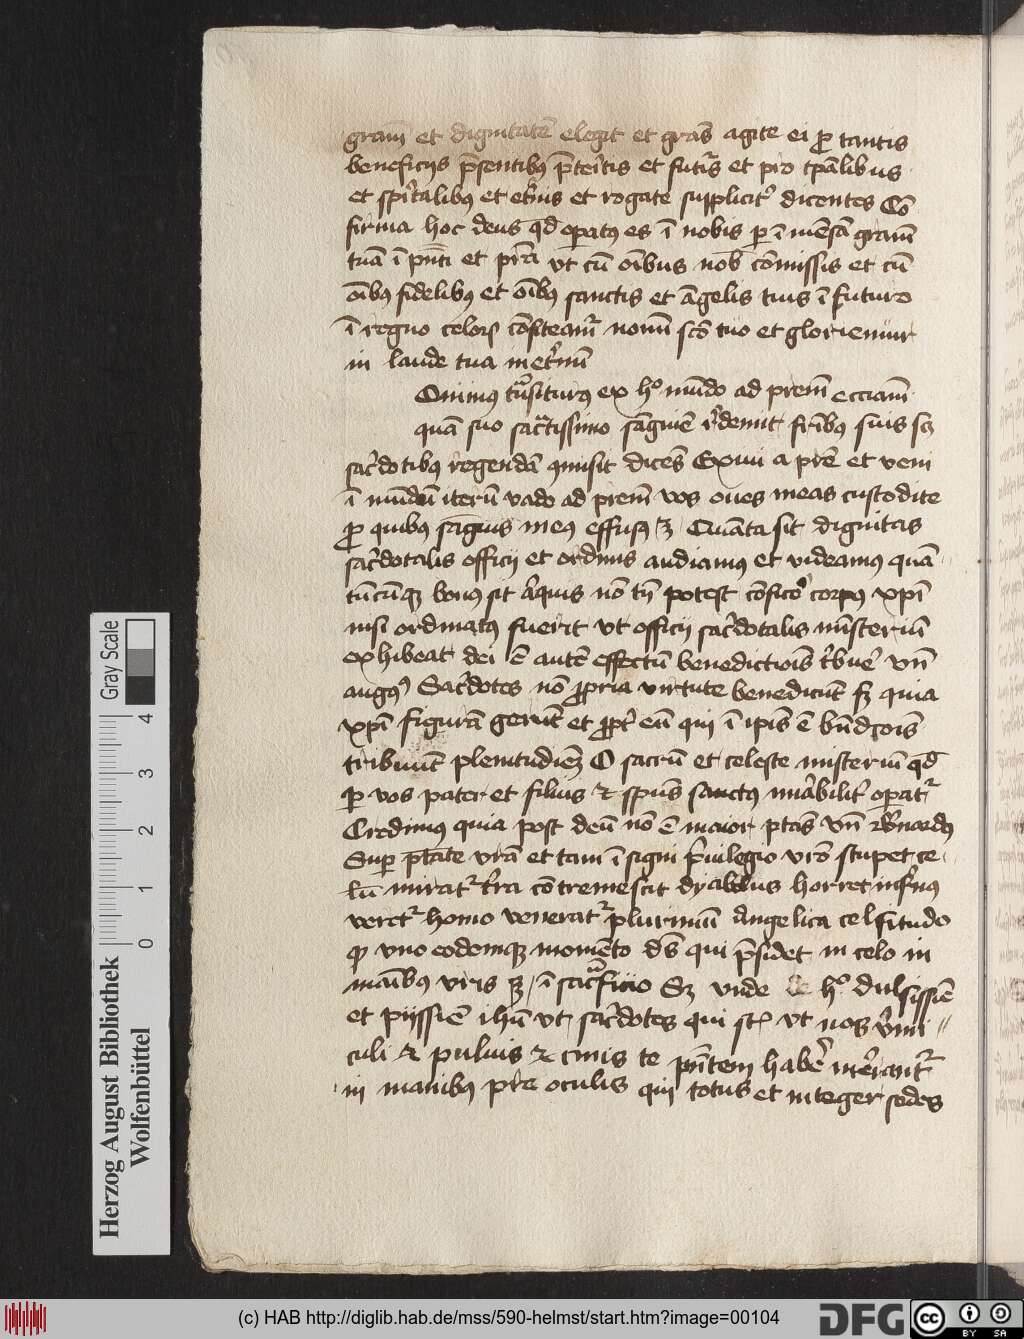 gram̅ et dignitate̅ elegit et gra̅s agite ei ꝓ tantis
beneficijs p̅sentibꝰ p̅teri̅tis et futur̅s et pro tp̅alibus
et spi̅ritalibꝰ et et̅nis et rogate suppliciter dicentes Co̅
firma hoc deus qd̅ operatꝰ es i̅ nobis per i̅me̅sa̅ gram̅
tua̅ i̅ pn̅ti et pr̅ia vt cu̅ oi̅bus nob̅ co̅missis et cu̅
oi̅bꝰ fidelibꝰ et oi̅bꝰ sanctis et a̅gelis tuis i̅ futuro
i̅ regno celoꝝ co̅fiteamur nomi̅ sco̅ tuo et gloriemur
in laude tua in et̅nu̅
Dominus tra̅siturꝰ ex hº mu̅do ad prem̅ eccia̅m
qua̅ suo sacratissimo sa̅gui̅e redemit fri̅bꝰ suis scꝫ
sacerdotibꝰ regenda̅ co̅misit dice̅s Exiui a pr̅e et veni
i̅ mu̅du̅ iteru̅ vado ad prem̅ vos oues meas custodite
ꝓ quibꝰ sa̅guis meꝰ effusꝰ Qua̅ta sit dignitas
sacerdotalis officij et ordinis audiamꝰ et videamꝰ qua̅
tu̅cu̅qꝫ bonꝰ sit aliquis no̅ tn̅ potest co̅ficere corpꝰ xp̅i
nisi ordinatꝰ fuerit vt officij sacerdotalis mi̅steriu̅
exhibeat dei e̅ aute̅ effectu̅ benedictio̅is tribuere vn̅
augꝰ Sacerdotes no̅ ꝓpria virtute benedicu̅t sꝫ quia
xp̅i figura̅ geru̅t et ꝓpt̅ eu̅ qui i̅ ipi̅s e̅
tribuu̅t plenitudi̅em O sacru̅ et celeste misteriu̅ qd̅
ꝑ vos pater et filius et spu̅s sanctꝰ mirabiliter operatur
Credimus quia post deu̅ no̅ e̅ maior p̅tas vn̅ Bernardꝰ
Super p̅tate vr̅a et tam i̅signi priuilegio vr̅o stupet ce
lu̅ miratur terra co̅tremescit dyabolus horret infernꝰ
veretur homo veneratur plurimu̅ Angelica celsitudo
ꝙ vno eodemqꝫ mome̅to de̅s qui p̅sidet in celo in
mai̅bꝰ vris i̅ sacrificio Sꝫ vnde hº dulsissi̅e
et pijssi̅e ihu̅ vt sacerdotes qui su̅t vt nos vermi
culi et puluis et cinis te pn̅tem habere mereantur
in manibꝰ pre oculis qui totus et integer sedes
Herzog August Bibliothek
Wolfenbüttel
Gray Scale
0 1 2 3 4
(c) HAB http://diglib.hab.de/mss/590-helmst/start.htm?image=00104
DFG
cc BY SA